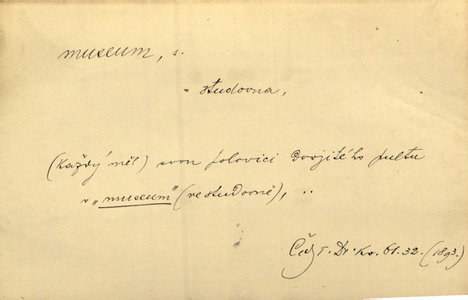 museum, s.
= studovna,
(Každý měl) svou polovici dvojitého pultu
v „museum" (ve studovně), ..
T. Dr. Kv. 61. 32. (1893.)